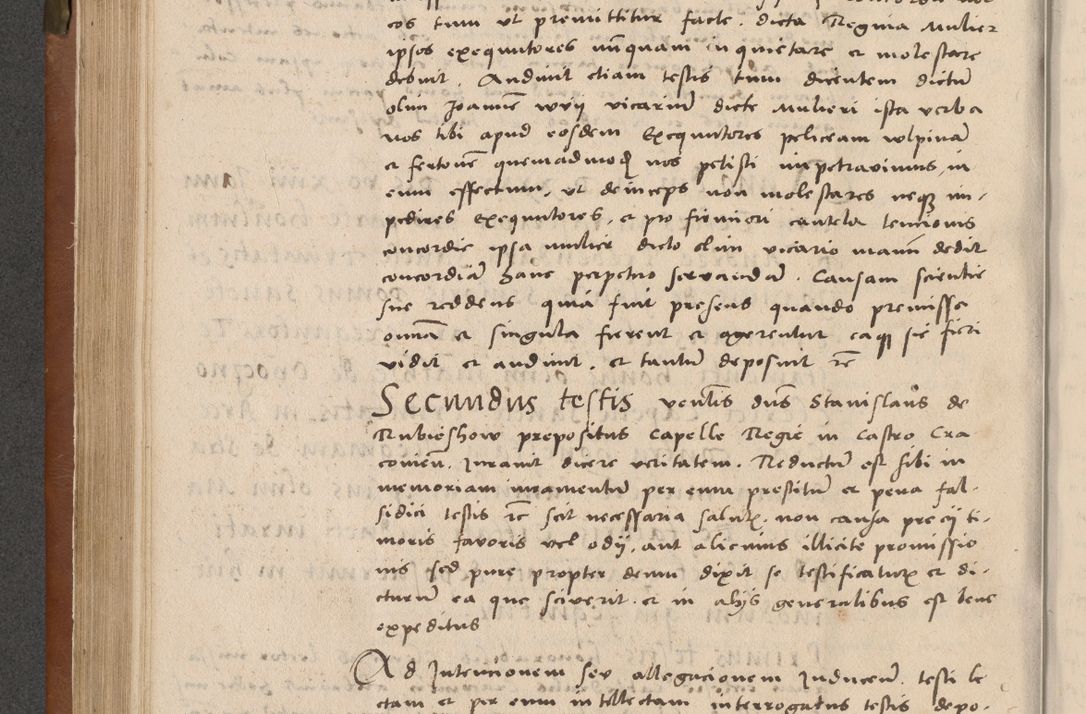 eos tum ut premittitur facte. dicta Regina mulier
ipsos exequutores nunquam inquietare et molestare
debuit. Audivit etiam testis tum dicentem dictum
olim Joannem vicarium dicte mulieri ista verba
nos tibi apud eosdem Exequutores peliceam vulpinam
et fertonem quemadmodum nos petisti impetravimus, in
eum effectum, ut deinceps non molestares neque im-
pedires Exequutores, et pro firmiori cautela tencionis
concordie ipsa mulier dicto olim vicario manum dedit
concordiam hanc perpetuo servandam. Causam scientie
sue reddens quia fuit presens quando premissa
omnia et singula fierent et agerentur eaque sic fieri
vidit et audivit, et tantum deposuit etc
Secundus testis venerabilis dominus Stanislaus de
Rubieshow prepositus Capelle Regie in Castro Cra
coviensi. Juravit dicere veritatem. Reductum est sibi in
memoriam iuramentum per eum prestitum et pena fal-
sidici testis etc scit necessaria salutis. non causa precij ti-
moris favoris vel odij, aut alicuius illicite promissio
nis sed pure propter deum dixit se testificaturum et di-
cturum ea que sciverit. et in alijs generalibus est bene
expeditus
Ad Intencionem seu allegacionem Inducentis. testi le
ctam et per eum intellectam interrogatus testis depo-